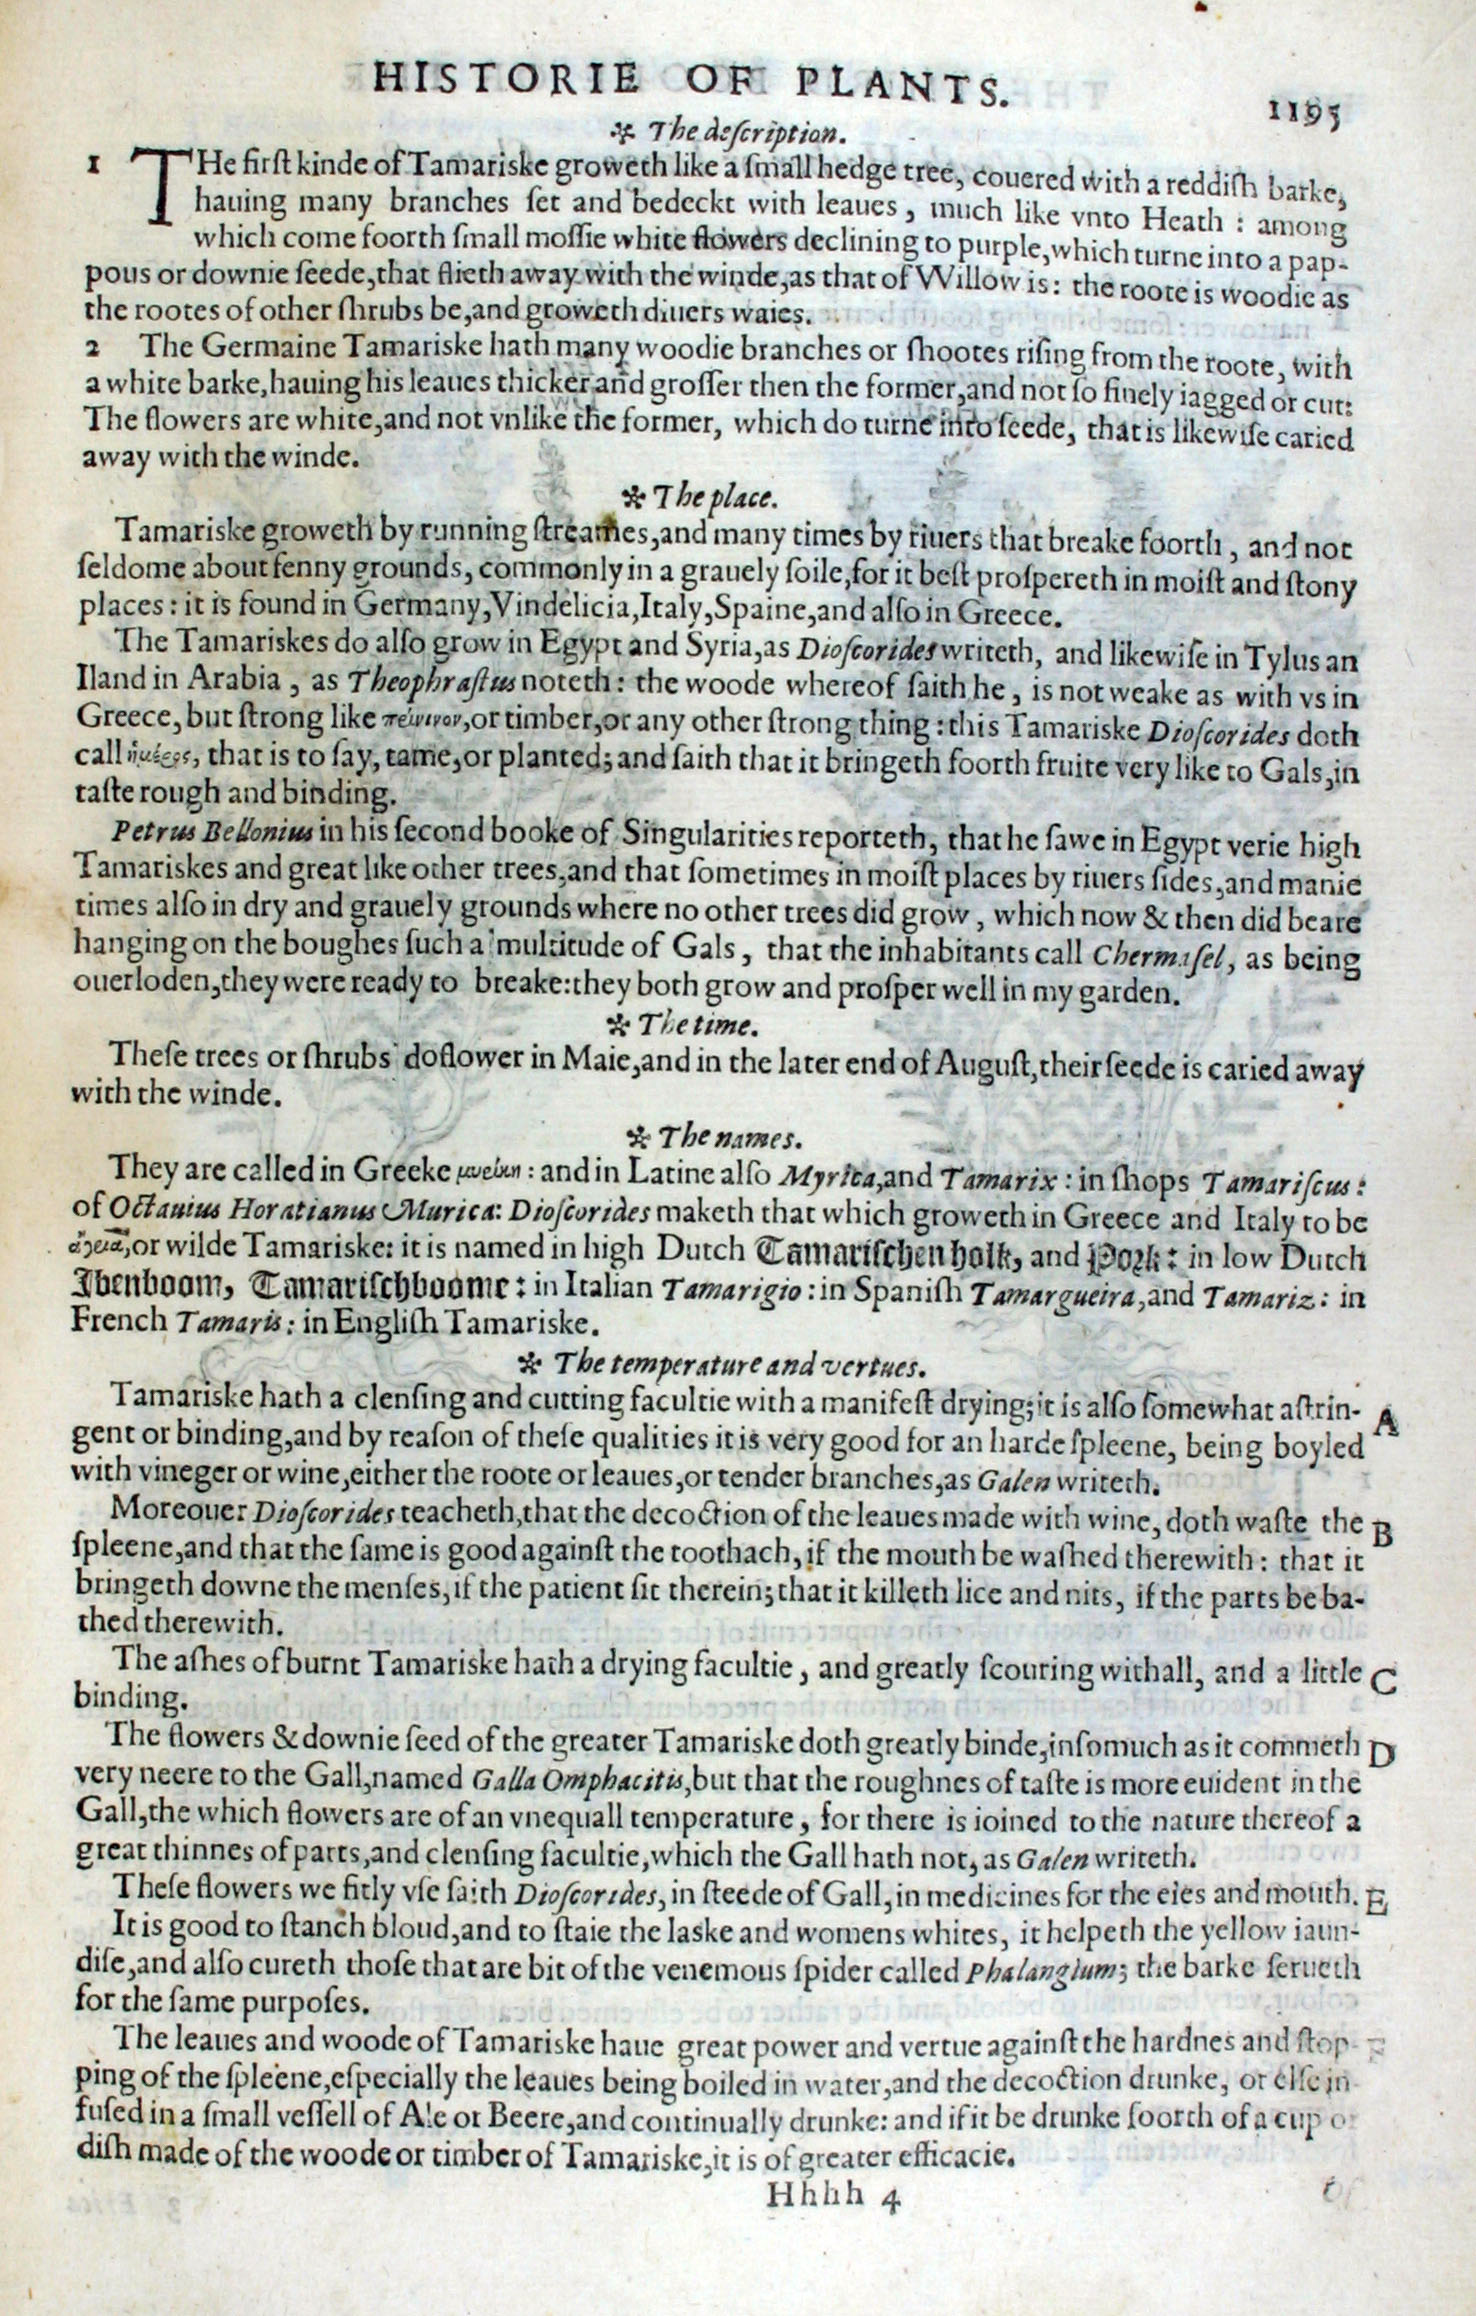 HISTORIE OF PLANTS.
1195
✲ The deſcription.
1 THe firſt kinde of Tamariske groweth like a ſmall hedge tree, couered with a reddiſh barke,
hauing many branches ſet and bedeckt with leaues, much like vnto Heath: among
which come foorth ſmall moſſie white flowers declining to purple, which turne into a pap-
pous or downie ſeede, that flieth away with the winde, as that of Willow is: the roote is woodie as
the rootes of other ſhrubs be, and groweth diuers waies.
2 The Germaine Tamariske hath many woodie branches or ſhootes riſing from the roote, with
a white barke, hauing his leaues thicker and groſſer then the former, and not ſo finely iagged or cut:
The flowers are white, and not vnlike the former, which do turne into ſeede, that is likewiſe caried
away with the winde.
✲ The place.
Tamariske groweth by running ſtreames, and many times by riuers that breake foorth, and not
ſeldome about fenny grounds, commonly in a grauely ſoile, for it beſt proſpereth in moiſt and ſtony
places: it is found in Germany, Vindelicia, Italy, Spaine, and alſo in Greece.
The Tamariskes do alſo grow in Egypt and Syria, as Dioſcorides writeth, and likewiſe in Tylus an
Iland in Arabia, as Theophraſtus noteth: the woode whereof ſaith he, is not weake as with vs in
Greece, but ſtrong like or timber, or any other ſtrong thing: this Tamariske Dioſcorides doth
call that is to ſay, tame, or planted; and ſaith that it bringeth foorth fruite very like to Gals, in
taſte rough and binding.
Petrus Bellonius in his ſecond booke of Singularities reporteth, that he ſawe in Egypt verie high
Tamariskes and great like other trees, and that ſometimes in moiſt places by riuers ſides, and manie
times alſo in dry and grauely grounds where no other trees did grow, which now & then did beare
hanging on the boughes ſuch a multitude of Gals, that the inhabitants call Chermaſel, as being
ouerloden, they were ready to breake: they both grow and proſper well in my garden.
✲ The time.
Theſe trees or ſhrubs do flower in Maie, and in the later end of Auguſt, their ſeede is caried away
with the winde.
✲ The names.
They are called in Greeke : and in Latine alſo Myrica, and Tamarix: in ſhops Tamariſcus:
of Octauius Horatianus Murica: Dioſcorides maketh that which groweth in Greece and Italy to be
or wilde Tamariske: it is named in high Dutch Tamariſchen holtz, and Pork: in low Dutch
Ibenboom, Tamariſchboome: in Italian Tamarigio: in Spaniſh Tamargueira, and Tamariz: in
French Tamaris: in Engliſh Tamariske.
✲ The temperature and vertues.
Tamariske hath a clenſing and cutting facultie with a manifeſt drying; it is alſo ſomewhat aſtrin- A
gent or binding, and by reaſon of theſe qualities it is very good for an harde ſpleene, being boyled
with vineger or wine, either the roote or leaues, or tender branches, as Galen writeth.
Moreouer Dioſcorides teacheth, that the decoction of the leaues made with wine, doth waſte the B
ſpleene, and that the ſame is good againſt the toothach, if the mouth be waſhed therewith: that it
bringeth downe the menſes, if the patient ſit therein; that it killeth lice and nits, if the parts be ba-
thed therewith.
The aſhes of burnt Tamariske hath a drying facultie, and greatly ſcouring withall, and a little C
binding.
The flowers & downie ſeed of the greater Tamariske doth greatly binde, inſomuch as it commeth D
very neere to the Gall, named Galla Omphacitis, but that the roughnes of taſte is more euident in the
Gall, the which flowers are of an vnequall temperature, for there is ioined to the nature thereof a
great thinnes of parts, and clenſing facultie, which the Gall hath not, as Galen writeth.
Theſe flowers we fitly vſe ſaith Dioſcorides, in ſteede of Gall, in medicines for the eies and mouth. E
It is good to ſtanch bloud, and to ſtaie the laske and womens whites, it helpeth the yellow iaun-
diſe, and alſo cureth thoſe that are bit of the venemous ſpider called Phalangium; the barke ſerueth
for the ſame purpoſes.
The leaues and woode of Tamariske haue great power and vertue againſt the hardnes and ſtop- F
ping of the ſpleene, eſpecially the leaues being boiled in water, and the decoction drunke, or elſe in
fuſed in a ſmall veſſell of Ale or Beere, and continually drunke: and if it be drunke foorth of a cup o
diſh made of the woode or timber of Tamariske, it is of greater efficacie.
Hhhh 4